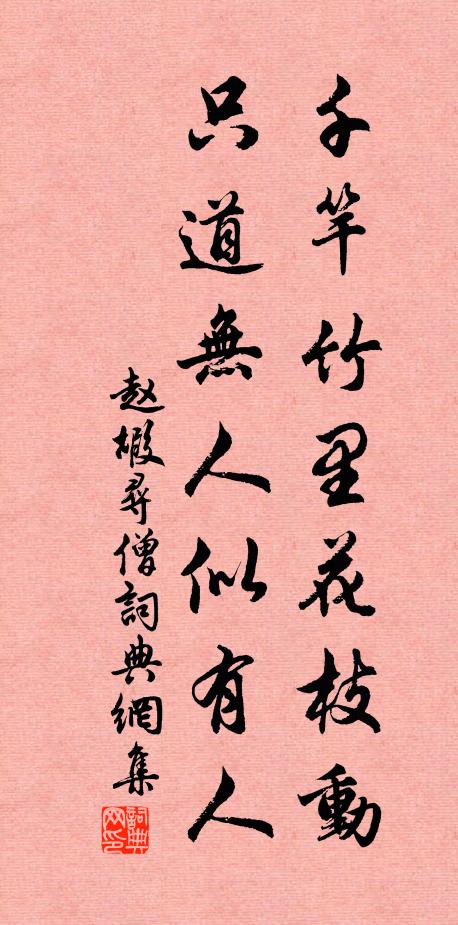 千竿竹里花枝動
只道無人似有人
赵嘏尋僧詞典網集
詞典网印